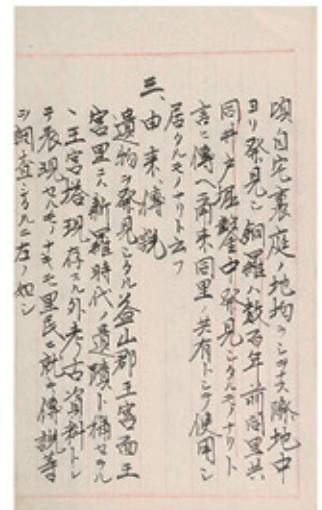 頃自宅裏庭ノ地均ヲシタル際地中
ヨリ発見シ銅羅ハ数百年前同里共
同井戸堀鑿中発見シタルモノナリト
言ヒ傳ヘ爾来同里ノ共有トシテ使用シ
居タルモノナリト云フ
三、由来、傳説
遺物ヲ発見シタル益山郡王宮面王
宮里ハ新羅時代ノ遺蹟ト稱セラル
ヽ王宮塔現存スル外考古資料トシ
テ表現セルモノナキモ里民ニ就キ傳説等
ヲ調査シタルニ左ノ如シ